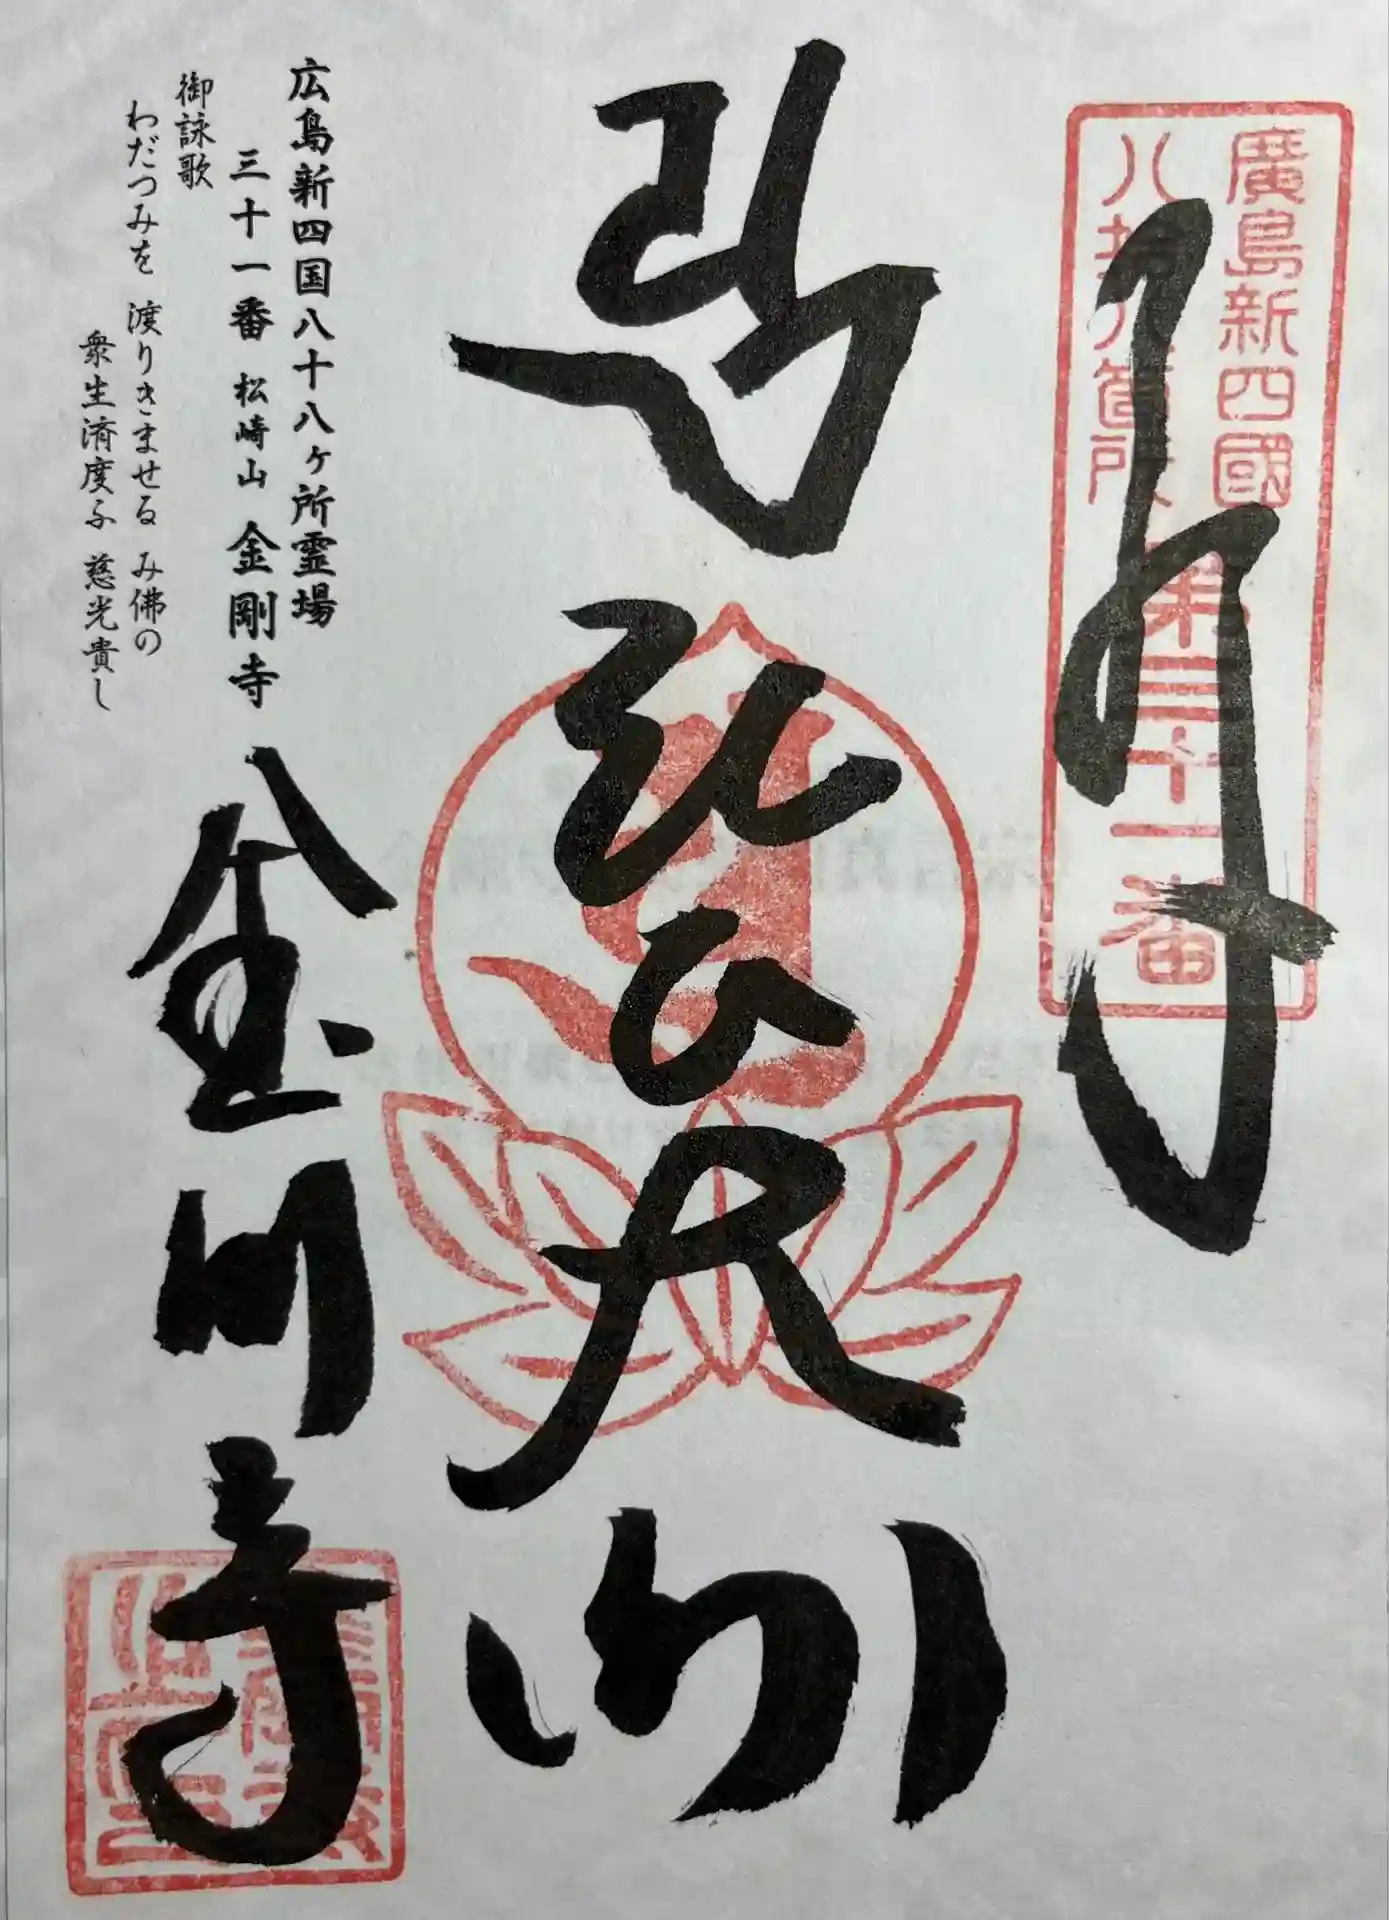 廣島新四國
八拾八箇所
第三十一番
弘法大師
金剛寺
広島新四国八十八ヶ所霊場
三十一番 松崎山 金剛寺
御詠歌
わだつみを 渡りきませる み佛の
衆生済度ふ 慈光貴し